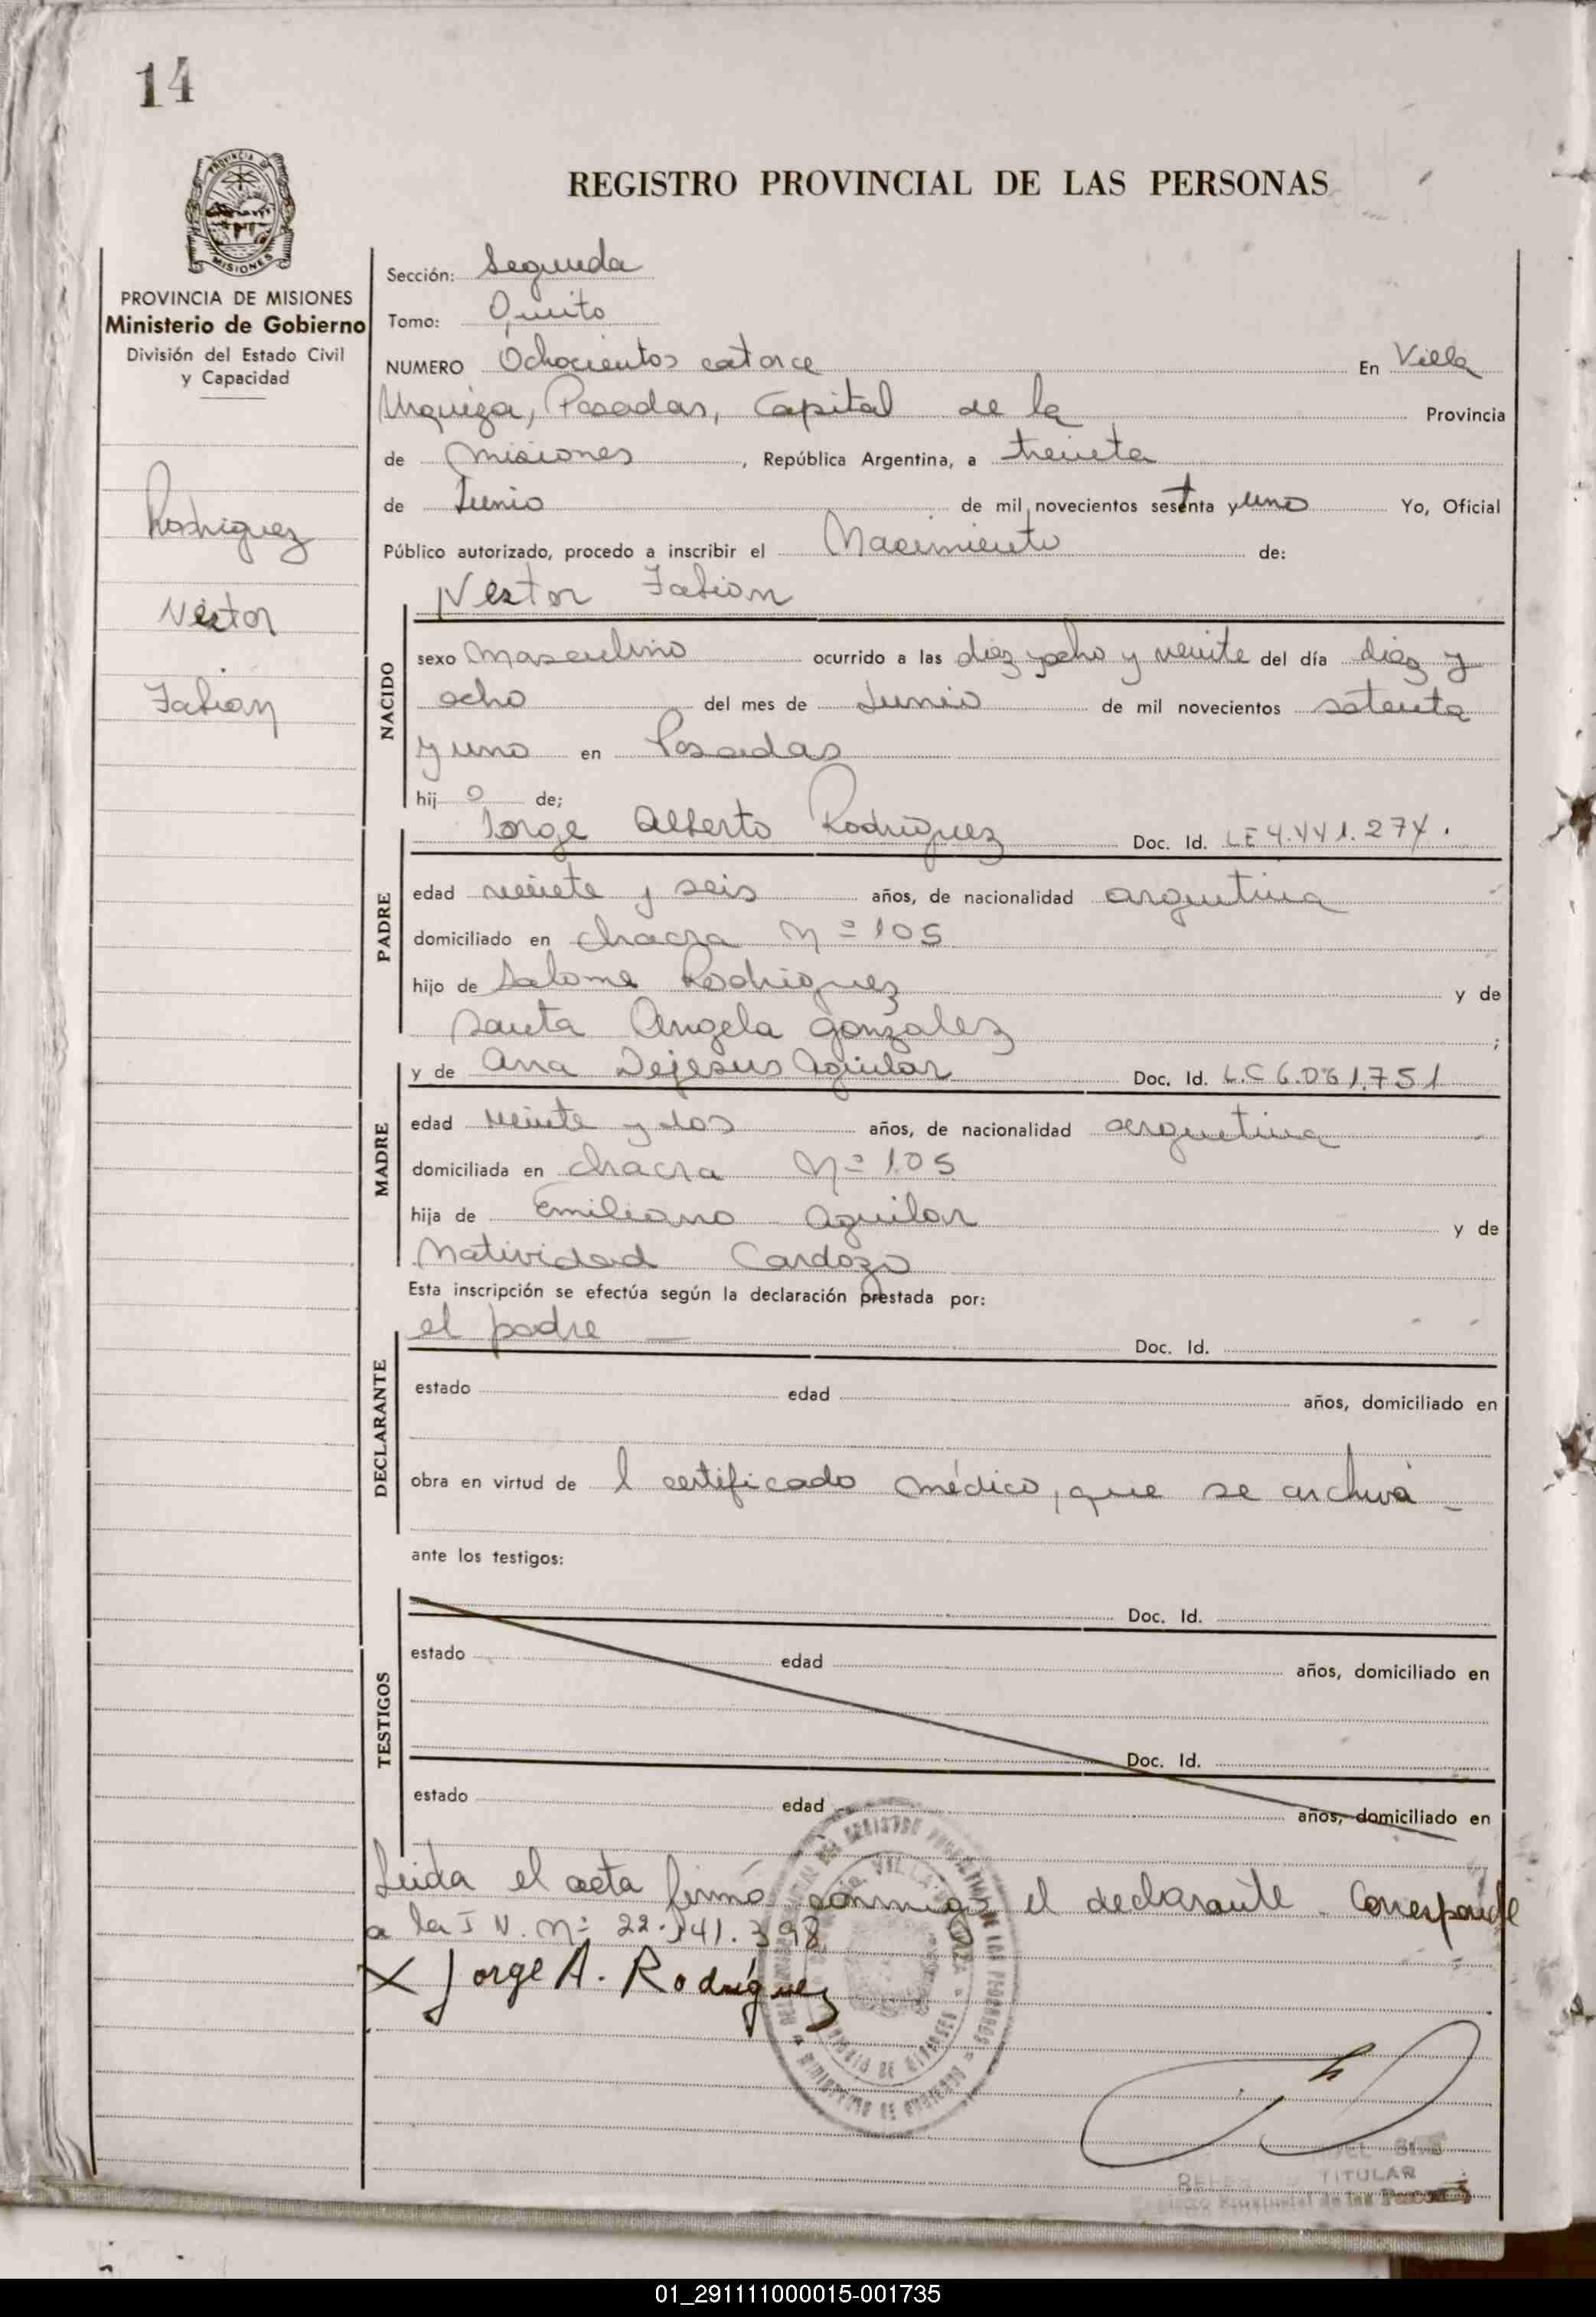 14
REGISTRO PROVINCIAL DE LAS PERSONAS
PROVINCIA DE MISIONES
Ministerio de Gobierno
División del Estado Civil
y Capacidad
Rodriguez
Néstor
Fabian
Sección: Segunda
Tomo: Quito
NUMERO Ochocientos catorce En Villa
Urquiza, Posadas, Capital de la Provincia
de Misiones, República Argentina, a treinta
de Junio de mil novecientos setenta y uno Yo, Oficial
Público autorizado, procedo a inscribir el Nacimiento de:
Néstor Fabian
NACIDO
sexo Masculino ocurrido a las diez y ocho y veinte del día diez y
ocho del mes de Junio de mil novecientos setenta
y uno en Posadas
hijo de;
Jorge Alberto Rodriguez Doc. Id. LE 4.441.274.
PADRE
edad veinte y seis años, de nacionalidad argentina
domiciliado en chacra Nº 105
hijo de Salome Rodriguez y de
Santa Angela gonzalez ;
y de Ana Dejesus Aguilar Doc. Id. L.C 6.061.751
MADRE
edad veinte y dos años, de nacionalidad argentina
domiciliada en chacra Nº 105
hija de Emiliano Aguilar y de
Natividad Cardozo
Esta inscripción se efectúa según la declaración prestada por:
el padre — Doc. Id.
DECLARANTE
estado edad años, domiciliado en
obra en virtud de l certificado médico, que se archiva -
ante los testigos:
TESTIGOS
Doc. Id.
estado edad años, domiciliado en
Doc. Id.
estado edad años, domiciliado en
Leida el acta firmó conmigo el declarante. Corresponde
a la I N. Nº 22.141.398
X Jorge A. Rodríguez
TITULAR
01_291111000015-001735